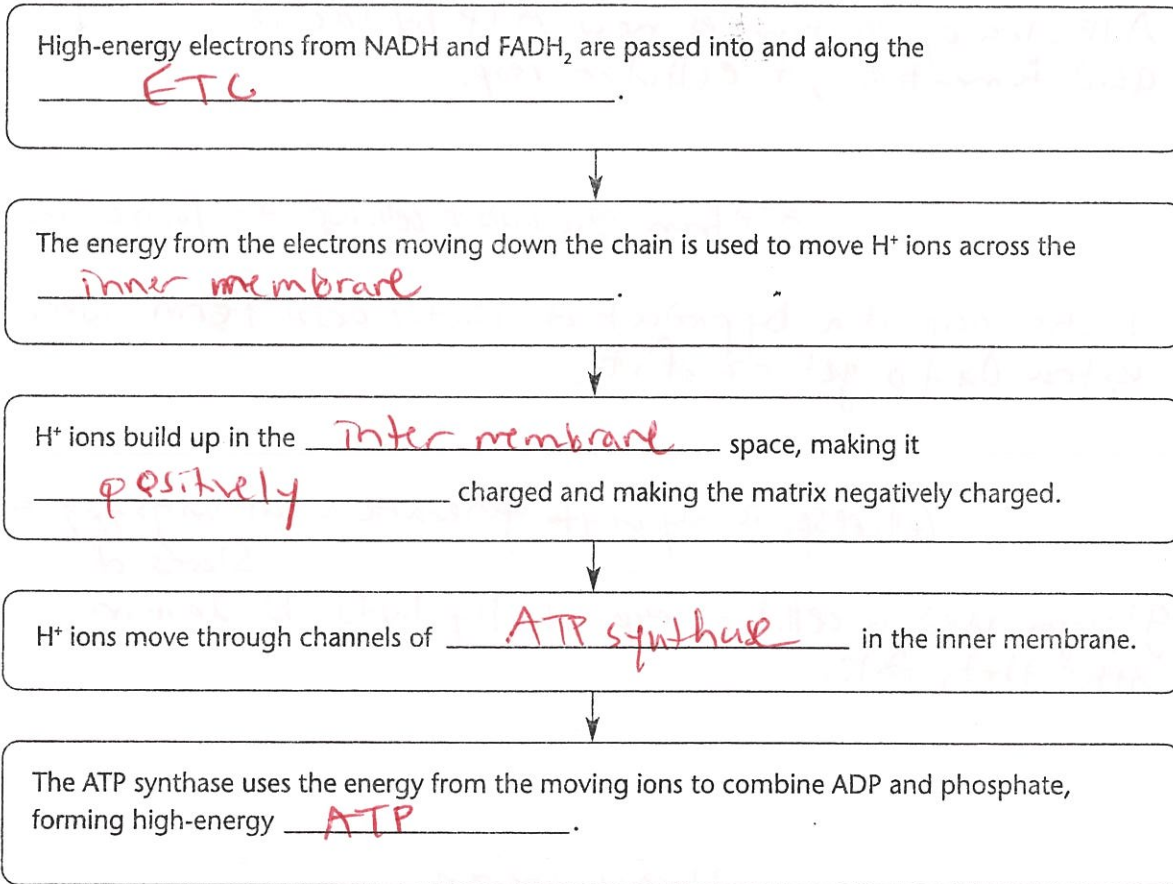 High-energy electrons from NADH and FADH₂ are passed into and along the
ETC.
The energy from the electrons moving down the chain is used to move H⁺ ions across the
inner membrane.
H⁺ ions build up in the inter membrane space, making it
positively charged and making the matrix negatively charged.
H⁺ ions move through channels of ATP synthase in the inner membrane.
The ATP synthase uses the energy from the moving ions to combine ADP and phosphate,
forming high-energy ATP.